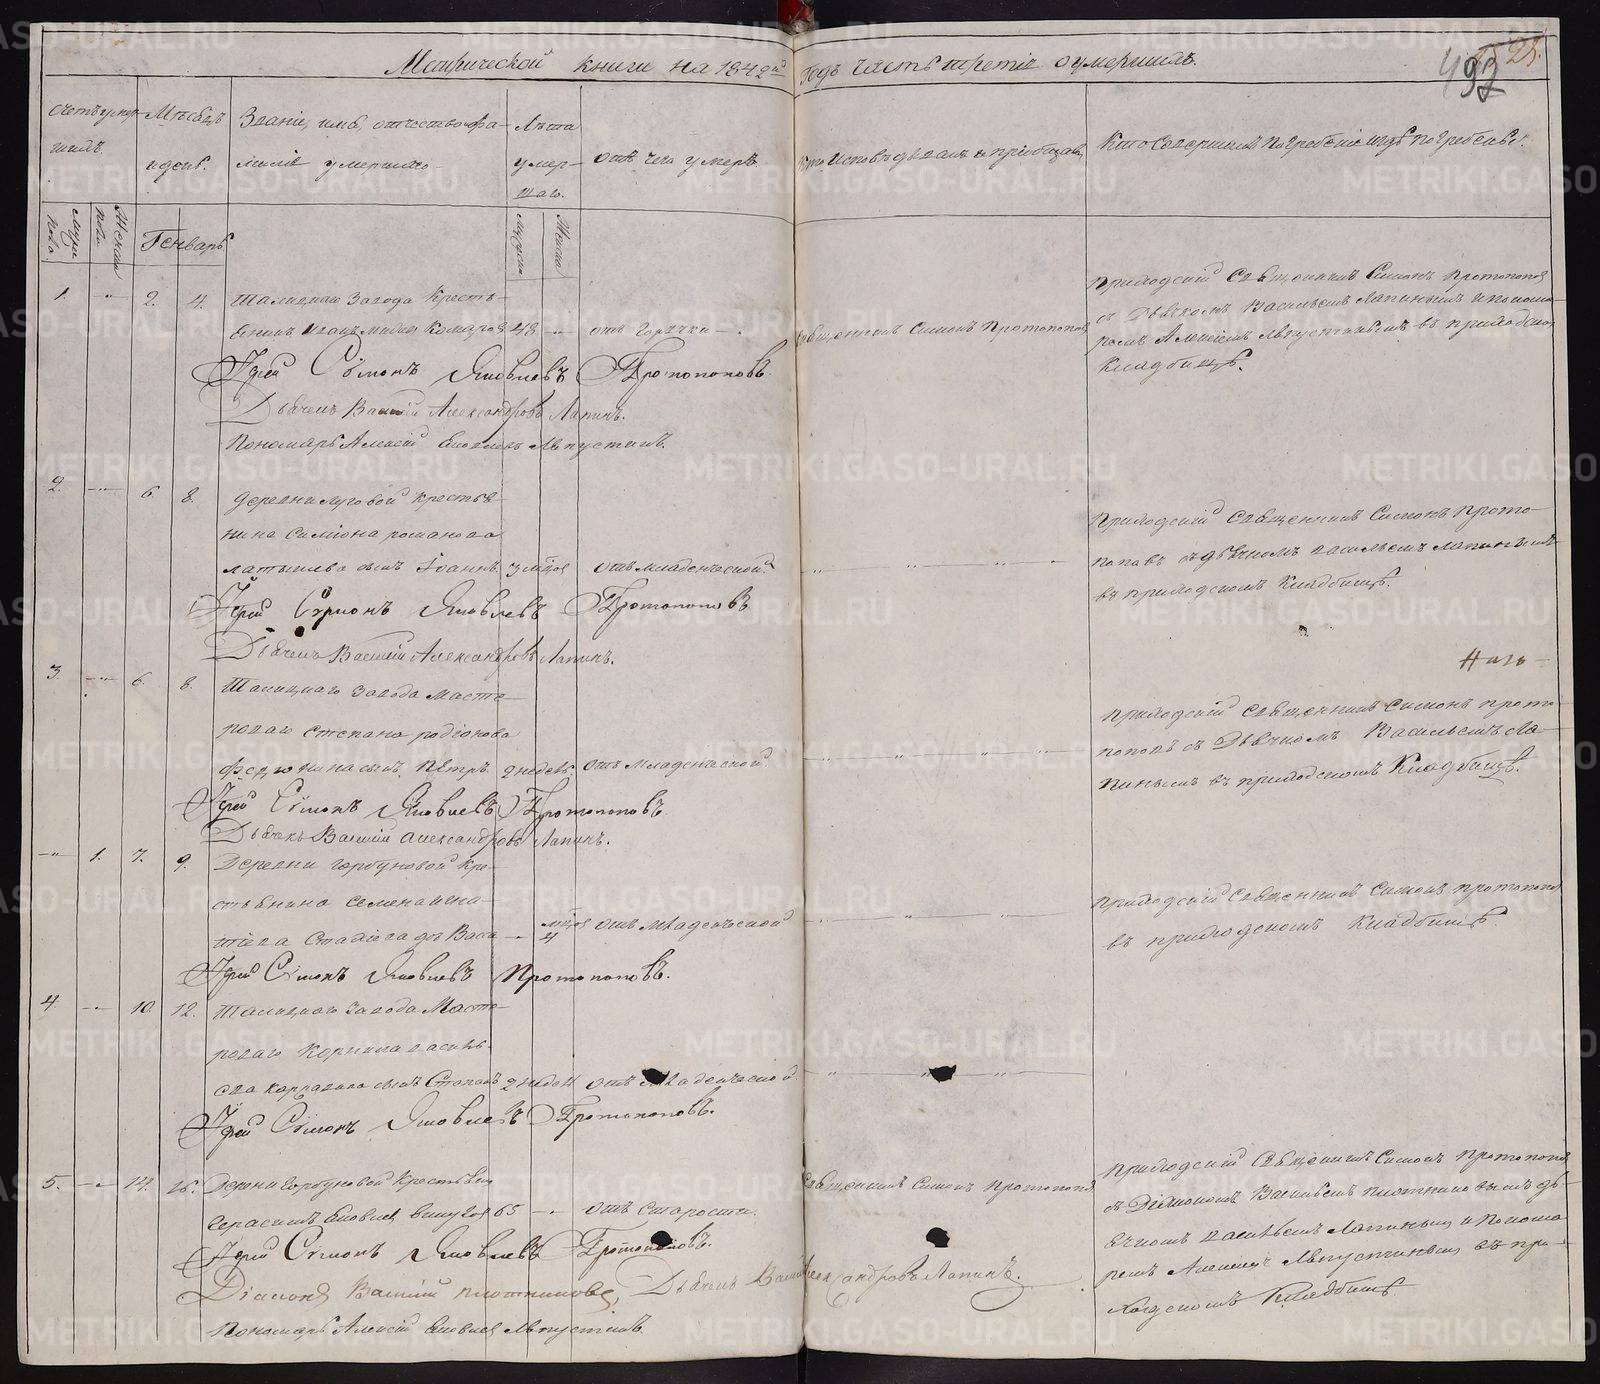 Метрической книги на 1842й Годъ часть третія о умершихъ.
492
25.
Счетъ умершихъ.
Мѣсяцъ и день.
Званіе, имя, отчество и фамилія умершаго
Лѣта умершаго.
отъ чего умеръ
Кто исповѣдывалъ и пріобщалъ
Кто совершалъ погребеніе и гдѣ погребены.
Мужеска пола
Женска пола
Генварь
Мужеска
Женска
1. -"- 2. 4. Талицкаго завода Кресть-
янинъ Комаровъ 48 -"- отъ Горячки
Священникъ Симонъ Протопоповъ
Приходскій Священникъ Симонъ Протопоповъ
съ Дьячкомъ Васильемъ Лапинымъ и понома-
ремъ Алексѣемъ Августиновымъ въ приходскомъ
Кладбищѣ.
Іерей Сѵмонъ Яковлевъ Протопоповъ
Дьячекъ Василій Александровъ Лапинъ.
Пономарь Алексій Яковлевъ Августинъ.
2. -"- 6. 8. деревни Луговой крестья-
нина Симіона романова
латышева сынъ Іоаннъ 3 мѣс. отъ младенческой
Приходскій Священникъ Симонъ Прото-
поповъ съ дьячкомъ васильемъ лапинымъ
въ приходскомъ Кладбищѣ.
Іерей Сѵмонъ Яковлевъ Протопоповъ
Дьячекъ Василій Александровъ Лапинъ.
3. -"- 6. 8. Талицкаго завода Масте-
роваго Степана родіонова
Федюнина сынъ Петръ 2 недѣль отъ Младенческой
Приходскій Священникъ Симонъ прото-
поповъ съ Дьячкомъ Васильемъ Ла-
пинымъ въ приходскомъ Кладбищѣ.
Іерей Сѵмонъ Яковлевъ Протопоповъ
Дьячекъ Василій Александровъ Лапинъ.
-"- 1. 7. 9. Деревни Горбуновой Кре-
стьянина Семена Игна-
тіева дочь Васса -"- мѣсяц 4 отъ Младенческой
Приходскій Священникъ Симонъ протопоповъ
въ приходскомъ Кладбищѣ.
Іерей Сѵмонъ Яковлевъ Протопоповъ.
4 -"- 10. 12. Талицкаго завода Масте-
роваго Корнила василь-
ева сынъ Степанъ 2 недѣл отъ Младенческой
Іерей Сѵмонъ Яковлевъ Протопоповъ.
5. -"- 14. 16. Деревни Горбуновой Крестьянинъ
Герасимъ Яковлевъ 65 -"- отъ Старости.
Священникъ Симонъ Протопоповъ
Приходскій Священникъ Симонъ Протопоповъ
съ Діакономъ Васильемъ Плотниковымъ дь-
ячкомъ васильемъ Лапинымъ и понома-
ремъ Алексѣемъ Августиновымъ въ при-
ходскомъ Кладбищѣ.
Іерей Сѵмонъ Яковлевъ Протопоповъ.
Діаконъ Василій Плотниковъ, Дьячекъ Василій Александровъ Лапинъ.
Пономарь Алексій Яковлевъ Августинъ
METRIKI.GASO-URAL.RU